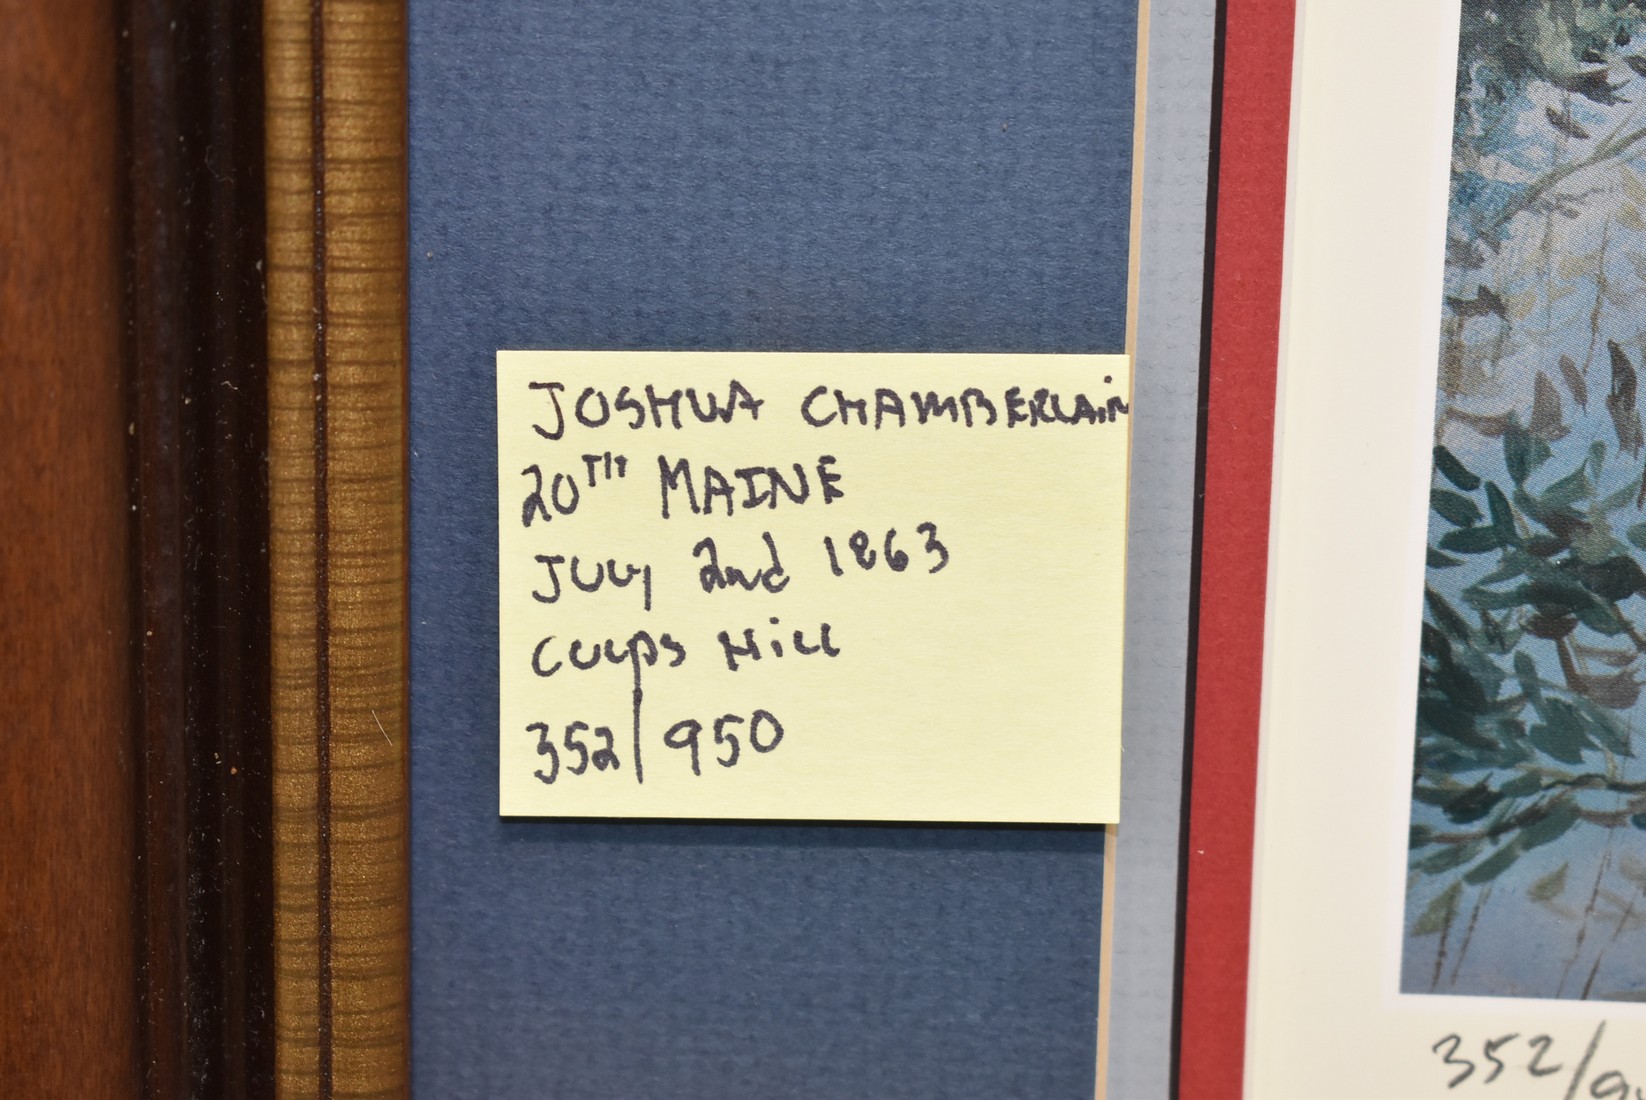 JOSHUA CHAMBERLAiN
20TH MAINE
JULY 2nd 1863
CULPS HiLL
352/950
352/9